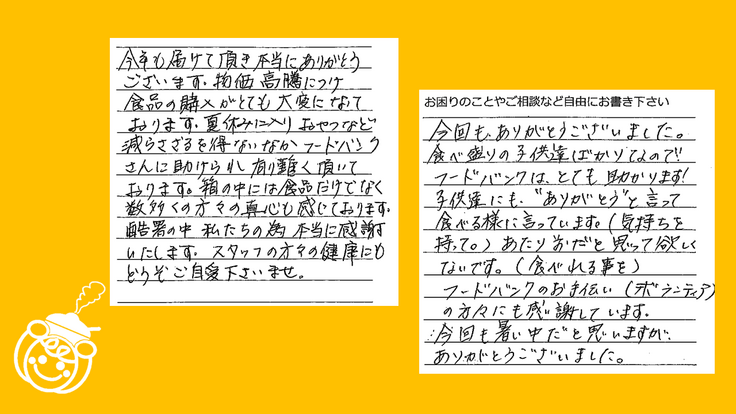 今年も届けて頂き本当にありがとう
ございます。物価高騰につけ
食品の購入がとても大変になって
おります。夏休みに入りおやつなど
減らさざるを得ないなかフードバンク
さんに助けられ有り難く頂いて
おります。箱の中には食品だけでなく
数多くの方々の真心も感じております。
酷暑の中私たちの為本当に感謝
いたします。スタッフの方々の健康にも
どうぞご自愛下さいませ。
お困りのことやご相談など自由にお書き下さい
今回も、ありがとうございました。
食べ盛りの子供達ばかりなので!
フードバンクは、とても助かります!
子供達にも、"ありがとう"と言って
食べる様に言っています。(気持ちを
持って。)あたり前だと思って欲しく
ないです。(食べれる事を)
フードバンクのお手伝い(ボランティア)
の方々にも感謝しています。
今回も暑い中だと思いますが、
ありがとうございました。